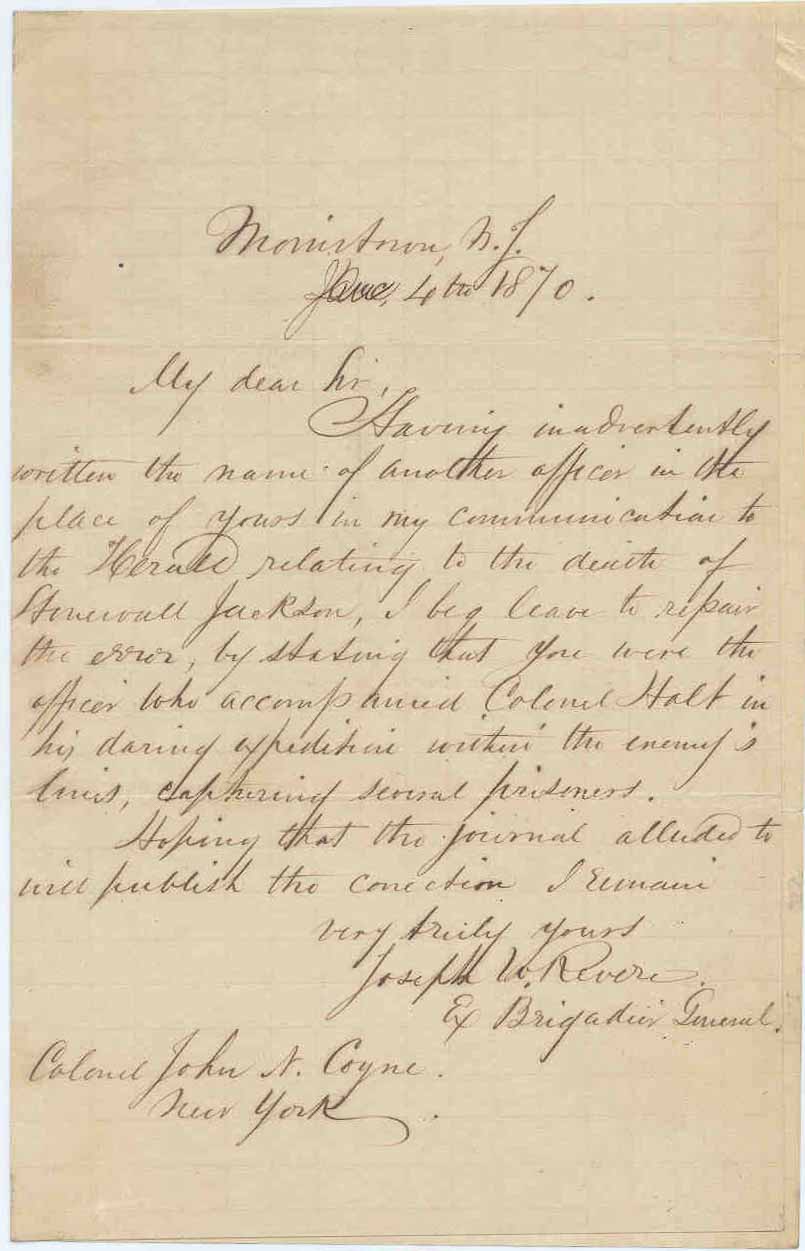 Morristown, N. J.
4th 1870.
My dear Sir,
Having inadvertently
written the name of another officer in the
place of yours in my communication to
the Herald relating to the death of
Stonewall Jackson, I beg leave to repair
the error, by stating that you were the
officer who accompanied Colonel Holt in
his daring expedition within the enemy's
lines, capturing several prisoners.
Hoping that the journal alluded to
will publish the correction I remain
very truly yours
Joseph W. Revere.
Ex Brigadier General.
Colonel John N. Coyne.
New York.